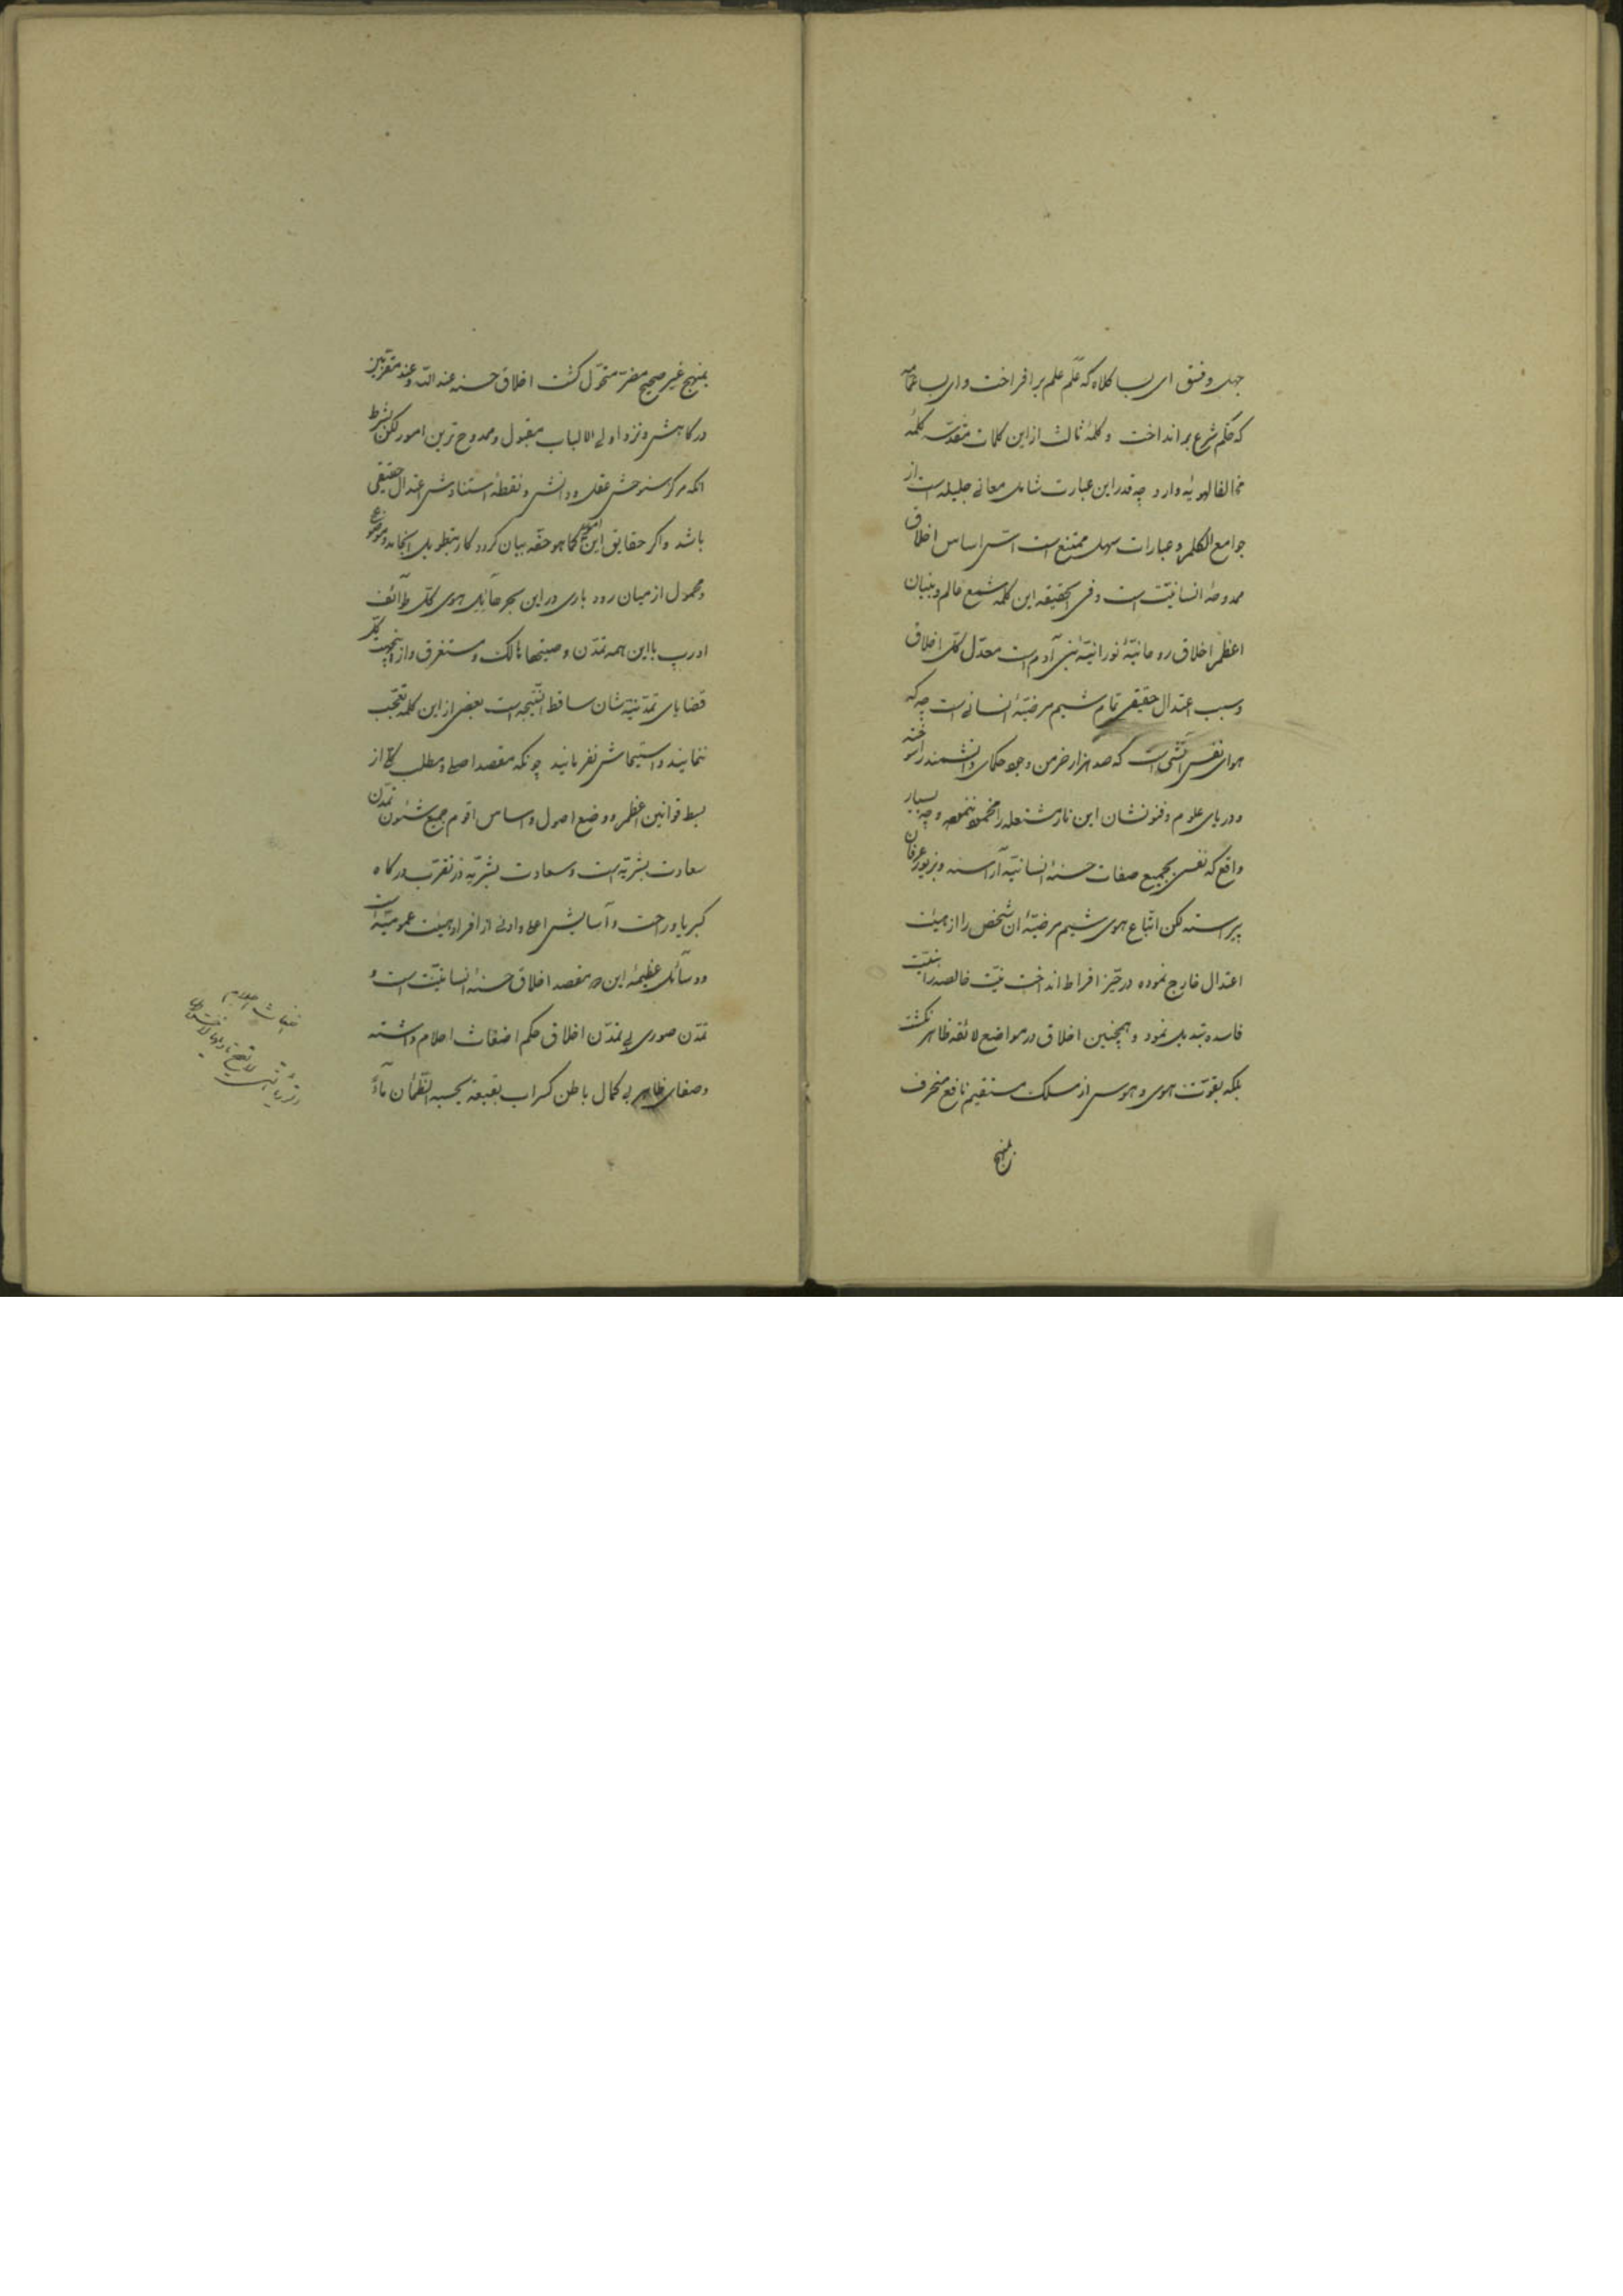 جهل و فسق ای بسا کلاه که عَلَم علم بر افراخت و ای بسا عمامه
که حکم شرع بر انداخت و کلمهٔ ثالث از این کلمات مقدّسه کلمهٔ
مخالفا لهویه وارد چه قدر این عبارت شامل معانی جلیله است از
جوامع الکلم و عبارات سهل ممتنع است اسّ اساس اخلاق
ممدوحهٔ انسانیّت است و فی الحقیقه این کلمه شمع عالم و بنیان
اعظم اخلاق روحانیّهٔ نورانیّهٔ بنی آدم است معدّل کلّ اخلاق
و سبب اعتدال حقیقی تمام شیم مرضیّهٔ انسانی است چه که
هوای نفس آتشی است که صد هزار خرمن وجود حکمای دانشمند را سوخته
و دریای علوم و فنونشان این نار مشتعله را مخمود ننموده و چه بسیار
واقع که نفسی بجمیع صفات حسنهٔ انسانیّه آراسته و بزیور عرفان
پیراسته لکن اتّباع هوی شیم مرضیّهٔ ان شخص را از هیئت
اعتدال خارج نموده در حیّز افراط انداخت نیّت خالصه را بنیّت
فاسده تبدیل نمود و همچنین اخلاق در مواضع لائقه ظاهر نگشت
بلکه بقوّت هوی و هوس از مسلک مستقیم نافع منحرف
بمنهج غیر صحیح مضرّ متحوّل گشت اخلاق حسنه عند اللّه و عند مقرّبین
درگاهش و نزد اولی الالباب مقبول و ممدوح ترین امور لکن بشرط
انکه مرکز سنوحش عقل و دانش و نقطهٔ استنادش اعتدال حقیقی
باشد و اگر حقایق این امور کما هو حقّه بیان گردد کار بتطویل انجامد و موضوع
و محمول از میان رود باری در این بحر هائل هوی کلّ طوآئف
اورپ با این همه تمدّن و صیتها هالک و مستغرق و از اینجهت کلّ
قضایای تمدّنیّه شان ساقط النّتیجه است بعضی از این کلمه تعجّب
ننمایند و استیحاش نفرمایند چونکه مقصد اصلی و مطلب کلّی از
بسط قوانین اعظم و وضع اصول و اساس اقوم جمیع شئون تمدّن
سعادت بشریّه است و سعادت بشریّه در تقرّب درگاه
کبریا و راحت و آسایش اعلی و ادنی از افراد هیئت عمومیّه است
و وسآئل عظیمهٔ این دو مقصد اخلاق حسنهٔ انسانیّت است و
تمدّن صوری بی تمدّن اخلاق حکم اضغاث احلام داشته
و صفای ظاهر بی کمال باطن کسراب بقیعة یحسبه الظّمآن مآءً